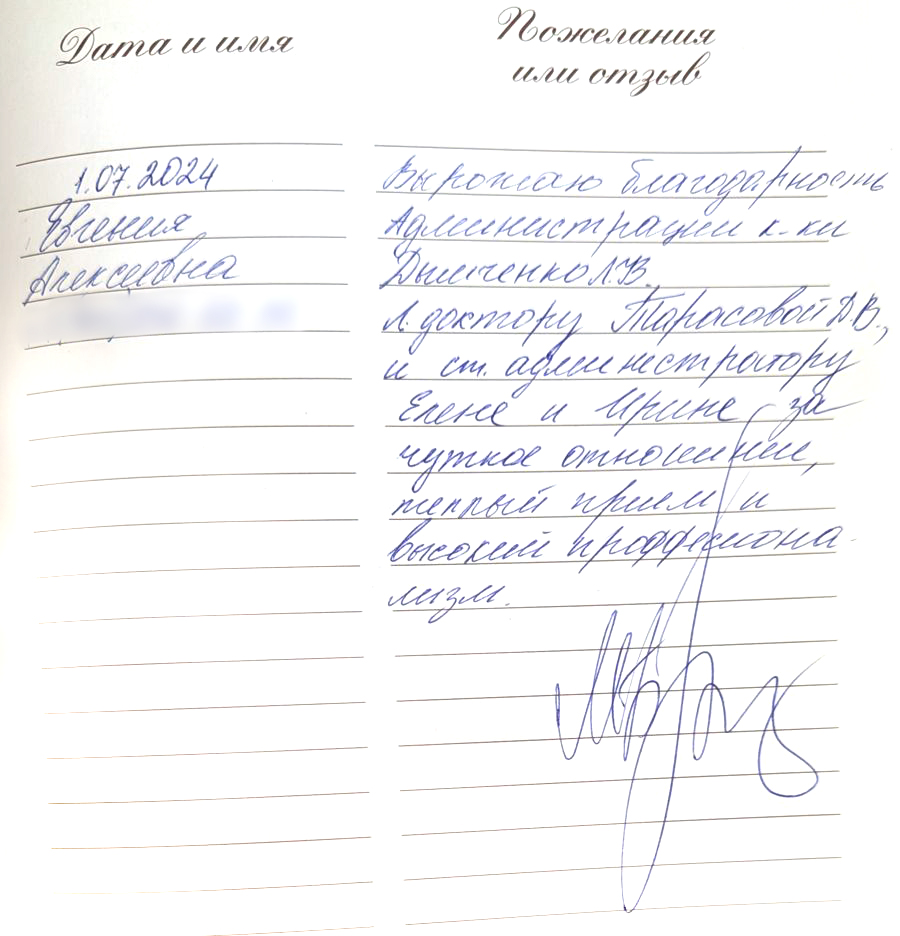 Дата и имя
Пожелания
или отзыв
1.07.2024
Евгения
Алексеевна
Выражаю благодарность
Администрации к-ки
Дымченко Л.В.
Л. доктору Тарасовой Д.В.,
и ст. администратору
Елене и Ирине за
чуткое отношении,
теплый прием и
высокий проффесиона-
лизм.